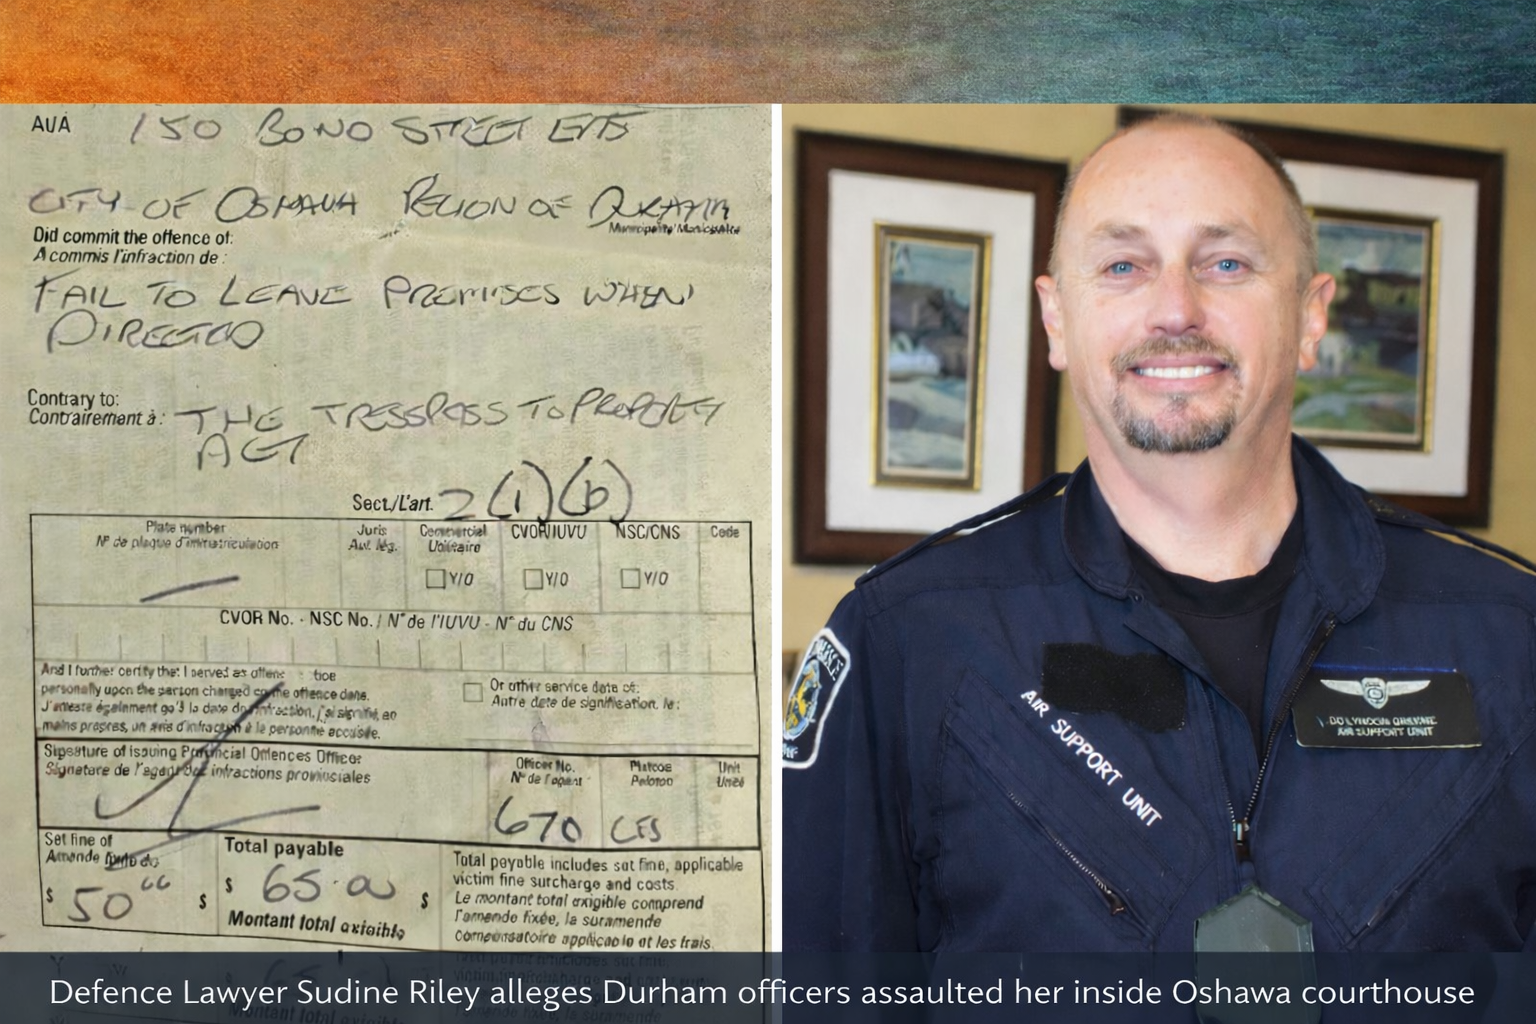 AT/À 150 BOND STREET EAST
CITY OF OSHAWA REGION OF DURHAM
Did commit the offence of:
A commis l'infraction de :
FAIL TO LEAVE PREMISES WHEN
DIRECTED
Contrary to:
Contrairement à :
THE TRESSPASS TO PROPERTY
ACT
Sect./L'art. 2(1)(b)
Plate number
N° de plaque d'immatriculation
Juris
Commercial
Utilitaire
CVOR/IUVU
NSC/CNS
Code
Y/O
Y/O
Y/O
CVOR No. - NSC No. / N° de l'IUVU - N° du CNS
And I further certify that I served an offence
personally upon the person charged on the offence date.
J'atteste également qu'à la date de l'infraction, j'ai signifié, en
mains propres, un avis d'infraction à la personne accusée.
Or other service date of:
Autre date de signification, le :
Signature of Issuing Provincial Offences Officer
Signature de l'agent des infractions provinciales
Officer No.
N° de l'agent
Platoon
Peloton
Unit
Unité
670
Set fine of
Amende fixée de
$ 50
$
Total payable
$ 65.00 $
Montant total exigible
Total payable includes set fine, applicable
victim fine surcharge and costs.
Le montant total exigible comprend
l'amende fixée, la suramende
compensatoire applicable et les frais.
AIR SUPPORT UNIT
AIR SUPPORT UNIT
Defence Lawyer Sudine Riley alleges Durham officers assaulted her inside Oshawa courthouse